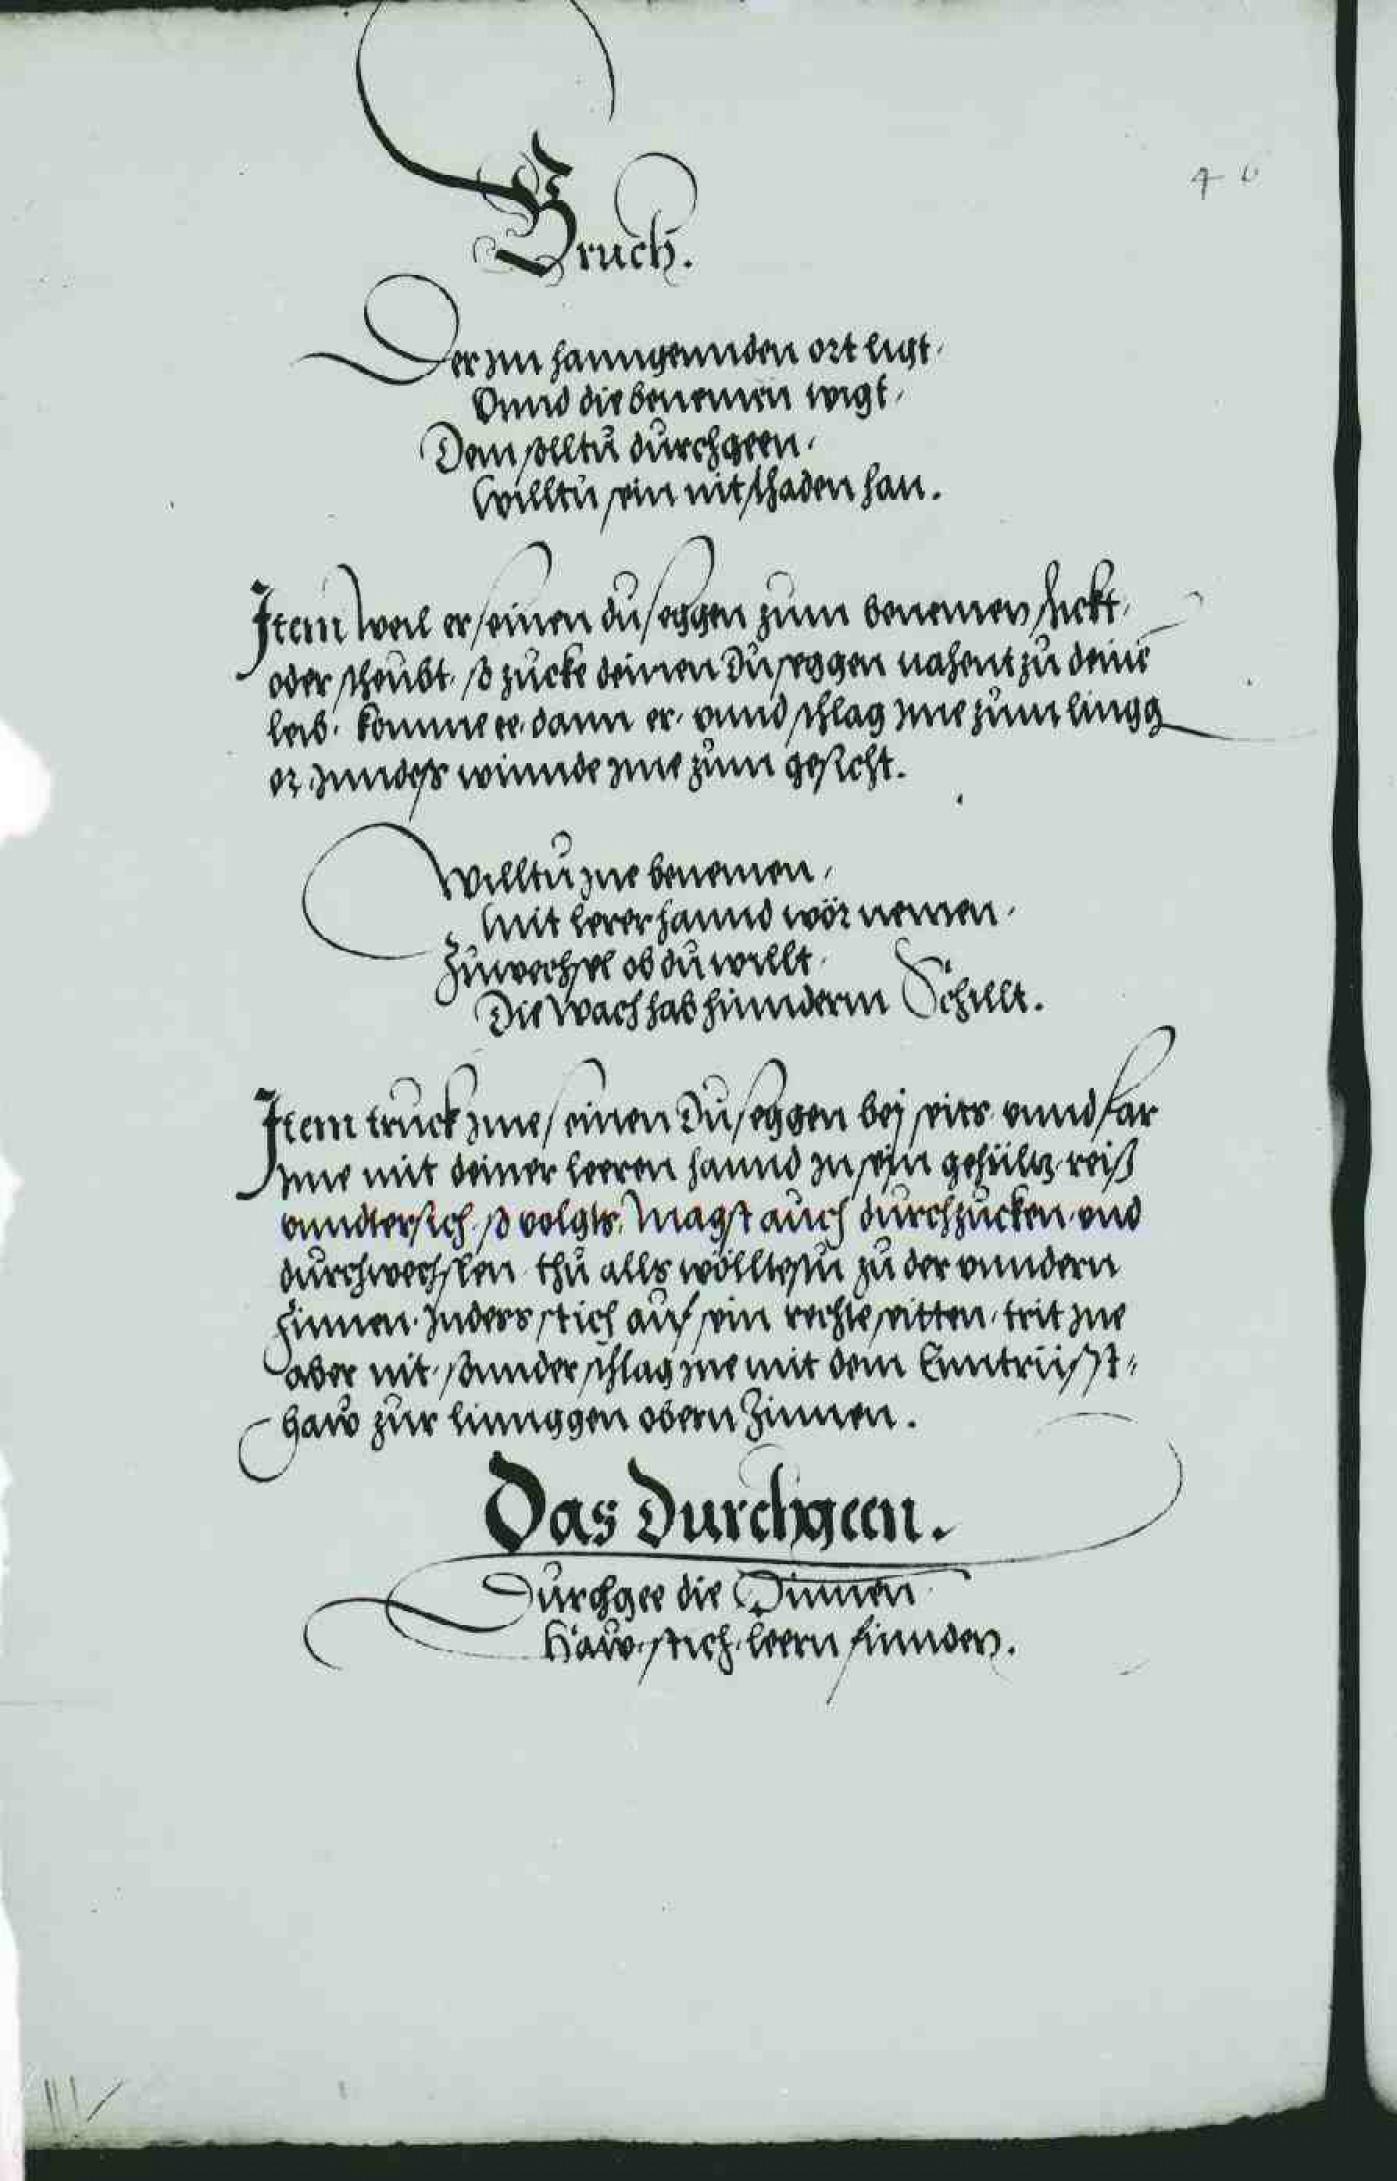 46
Bruch.
Der im hanngennden ort ligt,
Vnnd die benemen wigt,
Den solltu durchgeen,
Willtu sein nit schaden han.
Item Weil er seinen duseggen zum benemen schickt,
oder scheubt, so zucke deinen Duseggen nahent zu deinē
leib, komme ee, dann er, vnnd schlag ime zum lingg
or, Inndess winnde ime zum gesicht.
Willtu ine benemen,
Mit lerer hannd wör nemen,
Zuwechsel ob du willt,
Die Wach hab hinnderm Schillt.
Item truck ime seinen Duseggen bej seits vnnd far
Ime mit deiner leeren hannd zu sein gehültz, reiß
vnndtersich, so volgts, Magst auch durchzucken, vnd
durchwechslen, thu alls wölltestu zu der vnndern
Zinnen, Indess stich auf sein rechte seitten, trit ine
aber nit, sonnder schlag ine mit dem Enntrüsst=
haw zur linnggen obern Zinnen.
Das Durchgeen.
Durchgee die Zinnen
Häw, stich, leern finnden.